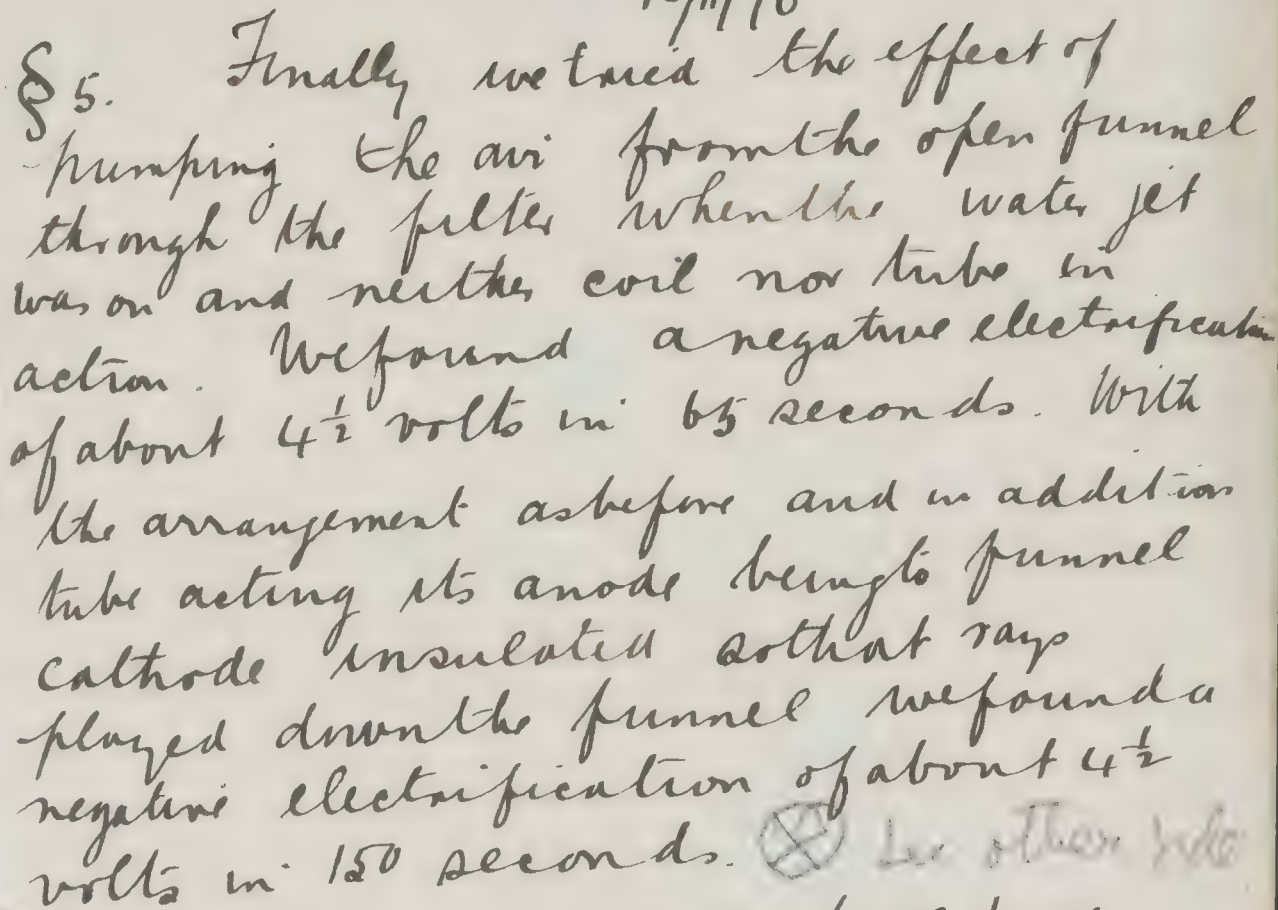 § 5. Finally we tried the effect of
pumping the air from the open funnel
through the filter when the water jet
was on and neither coil nor tube in
action. We found a negative electrification
of about 4½ volts in 65 seconds. With
the arrangement as before and in addition
tube acting its anode being to funnel
cathode insulated so that rays
played down the funnel we found a
negative electrification of about 4½
volts in 150 seconds. ⊗ See other side